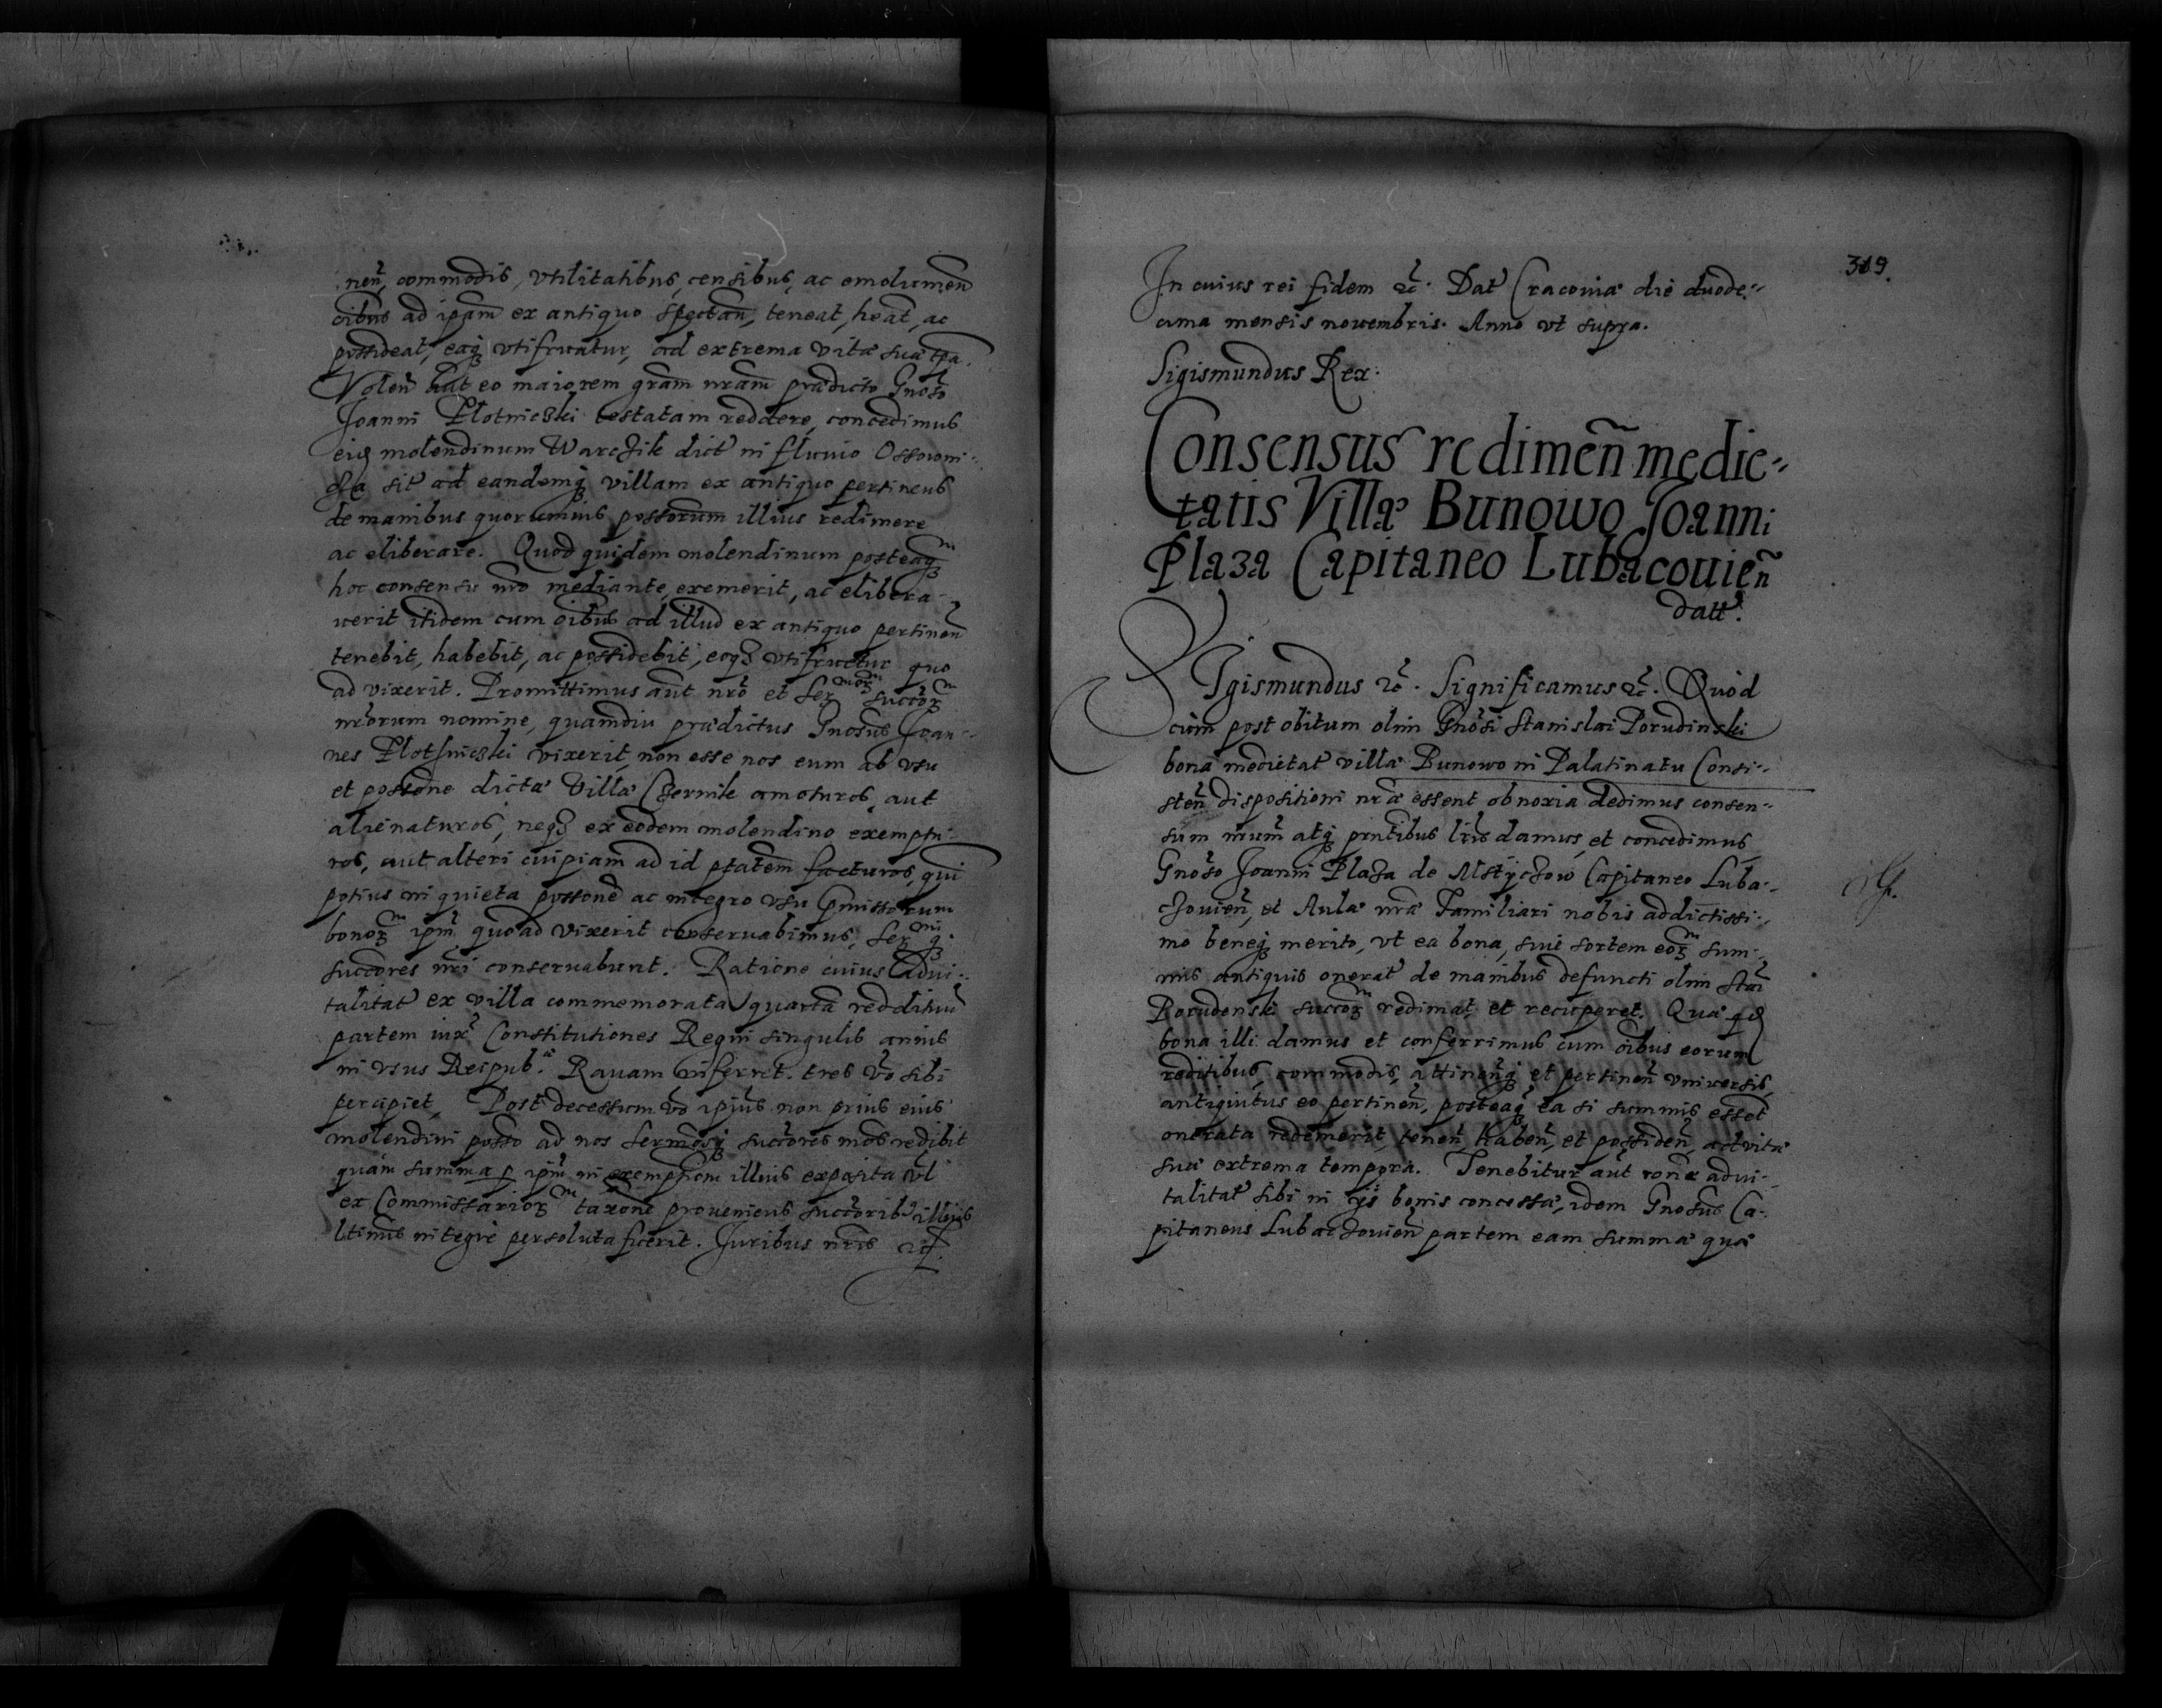 neñ, commodis, vtilitatibus, censibus, ac emolumen
oibus ad ipam ex antiquo spectañ, teneat, heat, ac
possideat, eaq vtifruatur, ad extrema vitæ suæ tpa.
Voleñ hat eo maiorem gram nram prædicto Gnoso
Joanni Plotniczki testatam reddere, concedimus
eiq molendinum Warchik dict in fluuio Ossowni-
cza sit ad eandemq villam ex antiquo pertinens
de manibus quorumuis possorum illius redimere
ac eliberare. Quod quidem molendinum posteaq
hoc consensu nro mediante, exemerit, ac elibera-
uerit itidem cum oibus ad illud ex antiquo pertineñ
tenebit, habebit, ac possidebit, eoq vtifruetur quo
ad vixerit. Promittimus aut nro et Ser succor
nrorum nomine, quamdiu prædictus Gnosus Joan-
nes Plotniczki vixerit non esse nos eum ab vsu
et possone dictæ Villæ Czernik amoturos, aut
alienaturos, neq ex eodem molendino exemptu-
ros, aut alteri cuipiam ad id ptatem facturos, qui
potius in quieta possone ac integro vsu pmissorum
bonor ipm quoad vixerit conseruabimus, Ser q
succores nri conseruabunt. Ratione cuius adui-
talitat ex villa commemorata quarta reddituu
partem iux Constitutiones Regni singulis annis
in vsus Reipub. Rauam inferret. tres vo sibi
percipiet, Post decessum vo ipius non prius eius
molendini posso ad nos Sermosq succores nros redibit
quam summa p ipm in exemptiom illius exposita vl
ex Commissarior taxone proueniens succorib illius
ltimis integre persoluta fuerit. Juribus nris
In cuius rei fidem &c. Dat Cracouiæ die duode-
cima mensis nouembris. Anno vt supra.
Sigismundus Rex.
319.
Consensus redimeñ medie-
tatis Villæ Bunowo Joanni
Plaza Capitaneo Lubacouieñ
datt.
Sigismundus &c. Significamus &c. Quod
cum post obitum olim Gnosi Stanislai Porudinski
bona medietat villæ Bunowo in Palatinatu Consi-
steñ dispositioni nræ essent obnoxia dedimus consen-
sum nrum atq pntibus lris damus, et concedimus
Gnoso Joanni Plaza de Mstychow Capitaneo Luba-
chouieñ, et Aulæ nræ Familiari nobis addictissi-
mo beneq merito, vt ea bona, siue sortem eor sum-
mis antiquis onerat de manibus defuncti olim Stai
Porudenski succor redimat, et recuperet. Quæ qd
bona illi damus et conferrimus cum oibus eorum
reditibus, commodis, attineñq et pertineñ vniuersis,
antiquitus eo pertineñ, posteaq ea si summis esset
onerata redemerit, teneñ habeñ, et possideñ, ad vitæ
suæ extrema tempora. Tenebitur aut rone adui-
talitat sibi in ijs bonis concessæ, idem Gnosus Ca-
pitaneus Lubachouieñ partem eam summæ quæ